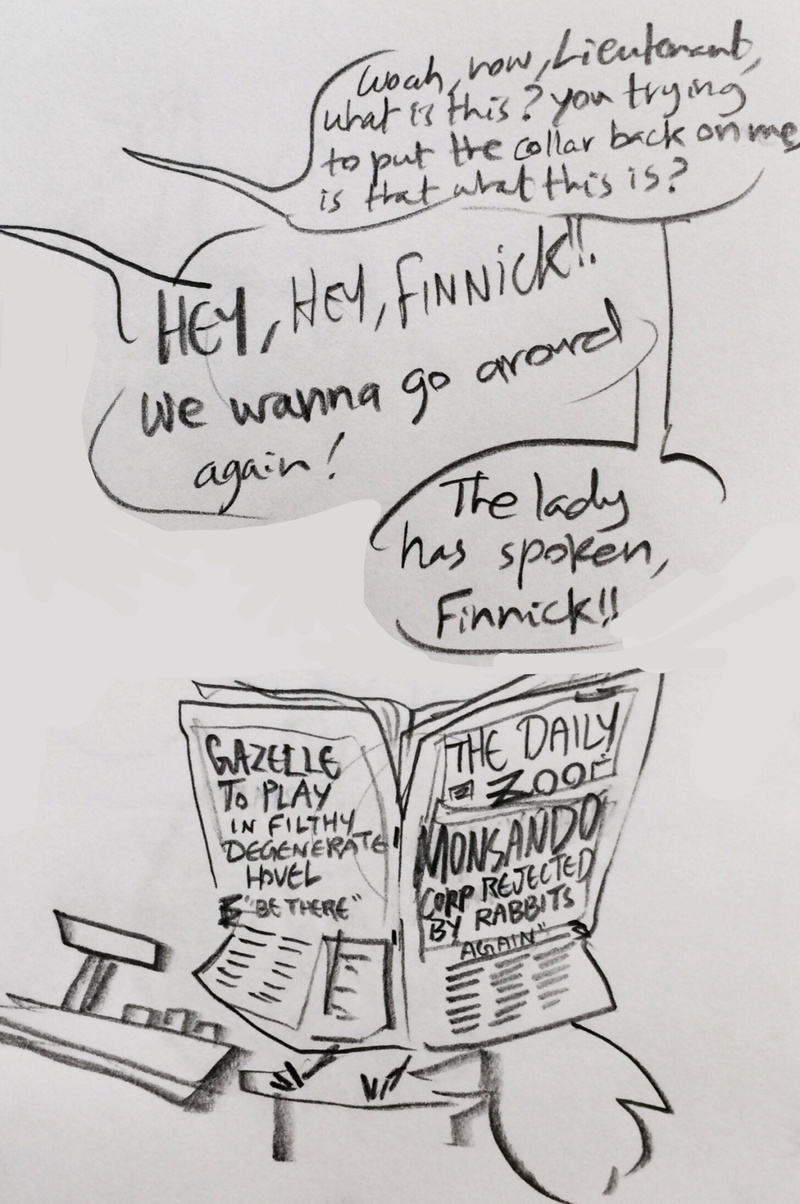 Woah, now, Lieutenant,
what is this? you trying
to put the collar back on me,
is that what this is?
HEY, HEY, FINNICK!!
We wanna go around
again!
The lady
has spoken,
Finnick!!
GAZELLE
TO PLAY
IN FILTHY
DEGENERATE
HOVEL
"BE THERE"
THE DAILY
ZOOT
MONSANDO
CORP REJECTED
BY RABBITS
AGAIN"